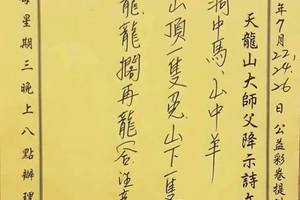 年7月22,24,26日公益彩卷提
天龍山大師父降示詩文
洞中馬、山中羊
山頂一隻兎山下一隻
龍龍擱再龍
每星期三晚上八點辦理